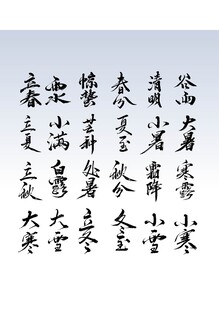 立春 雨水 惊蛰 春分 清明 谷雨
立夏 小满 芒种 夏至 小暑 大暑
立秋 白露 处暑 秋分 霜降 寒露
大寒 大雪 立冬 冬至 小雪 小寒